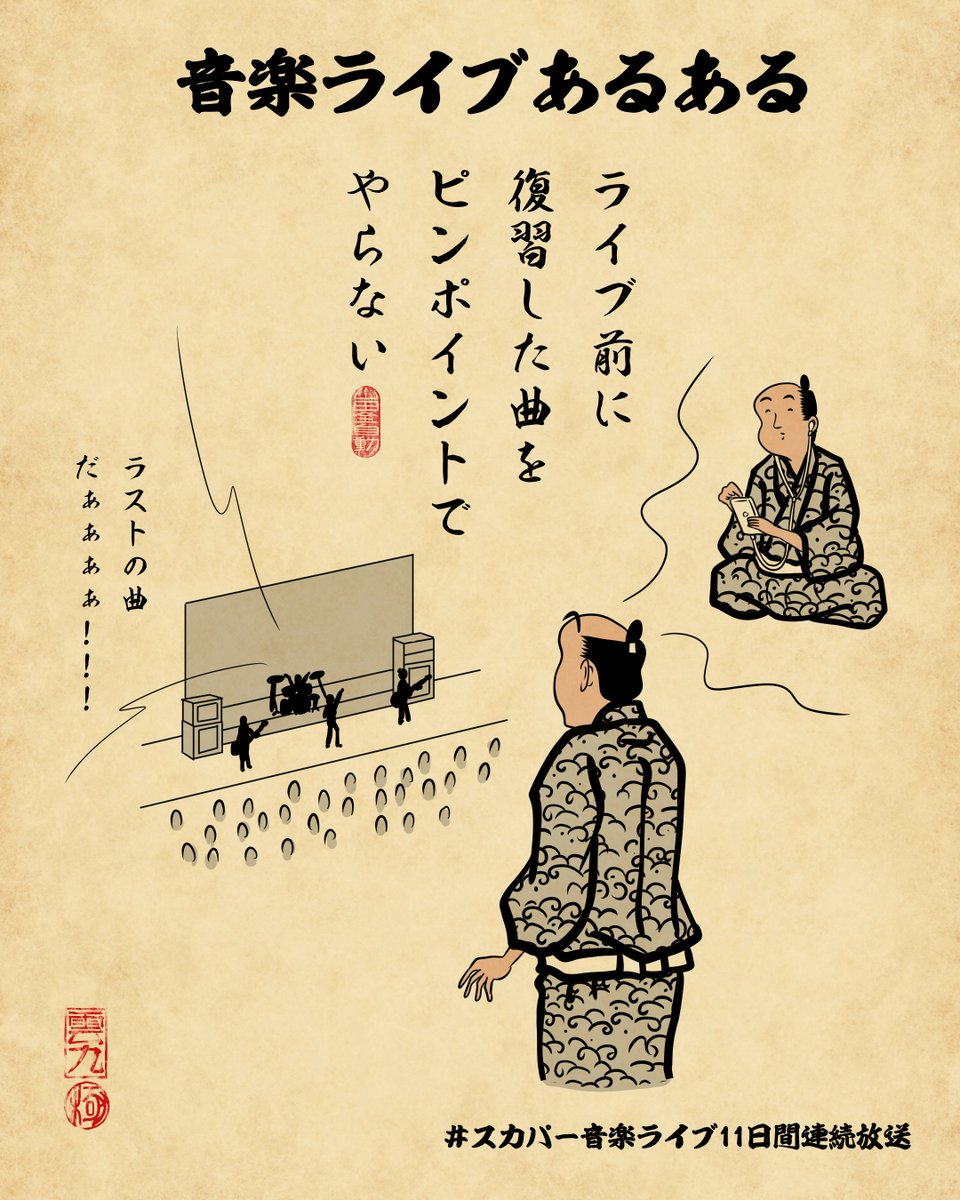 音楽ライブあるある
ライブ前に
復習した曲を
ピンポイントで
やらない
ラストの曲
だぁぁぁぁ!!!
#スカパー音楽ライブ11日間連続放送